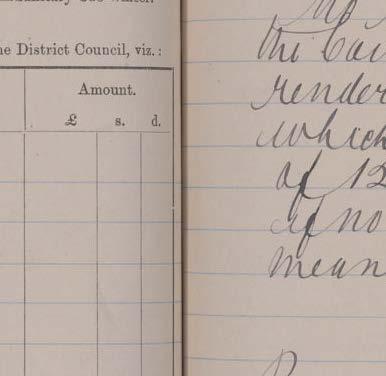 he District Council, viz.:
Amount.
£ s. d.
the Cou
render
which
of 12
if no
mean